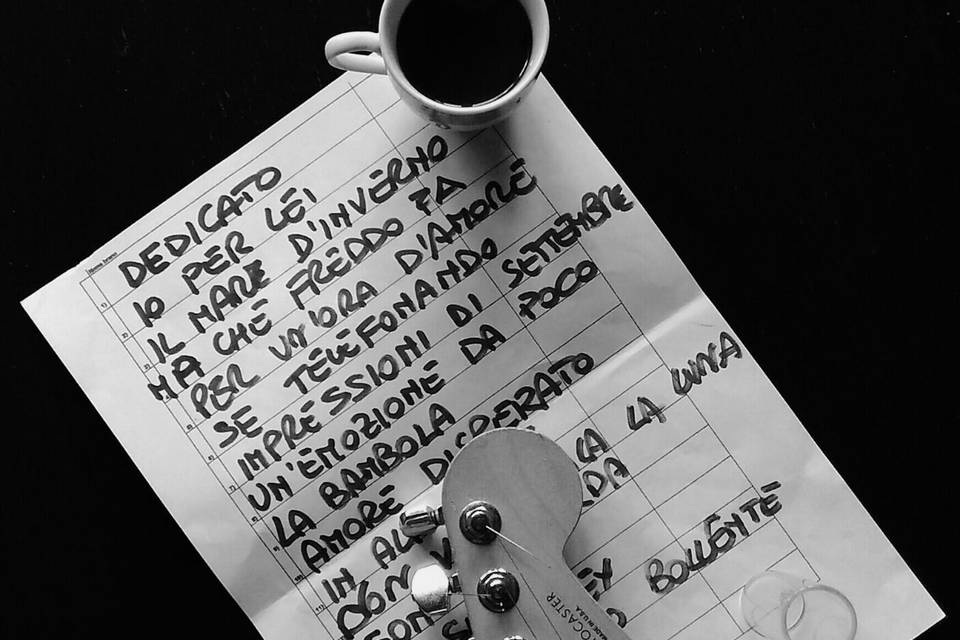 Nome brano
DEDICATO
IO PER LEI
IL MARE D'INVERNO
MA CHE FREDDO FA
PER UN'ORA D'AMORE
SE TELEFONANDO
IMPRESSIONI DI SETTEMBRE
UN'EMOZIONE DA POCO
LA BAMBOLA
AMORE DISPERATO
IN AL LA LA LUNA
DA
BOLLENTE
OCASTER
MADE IN U.S.A.